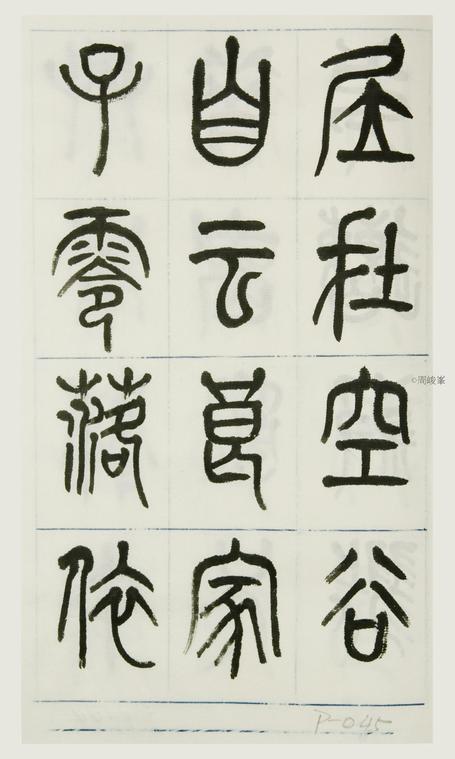 居在空谷
自云良家
子零落依
©周峻峯
P-045